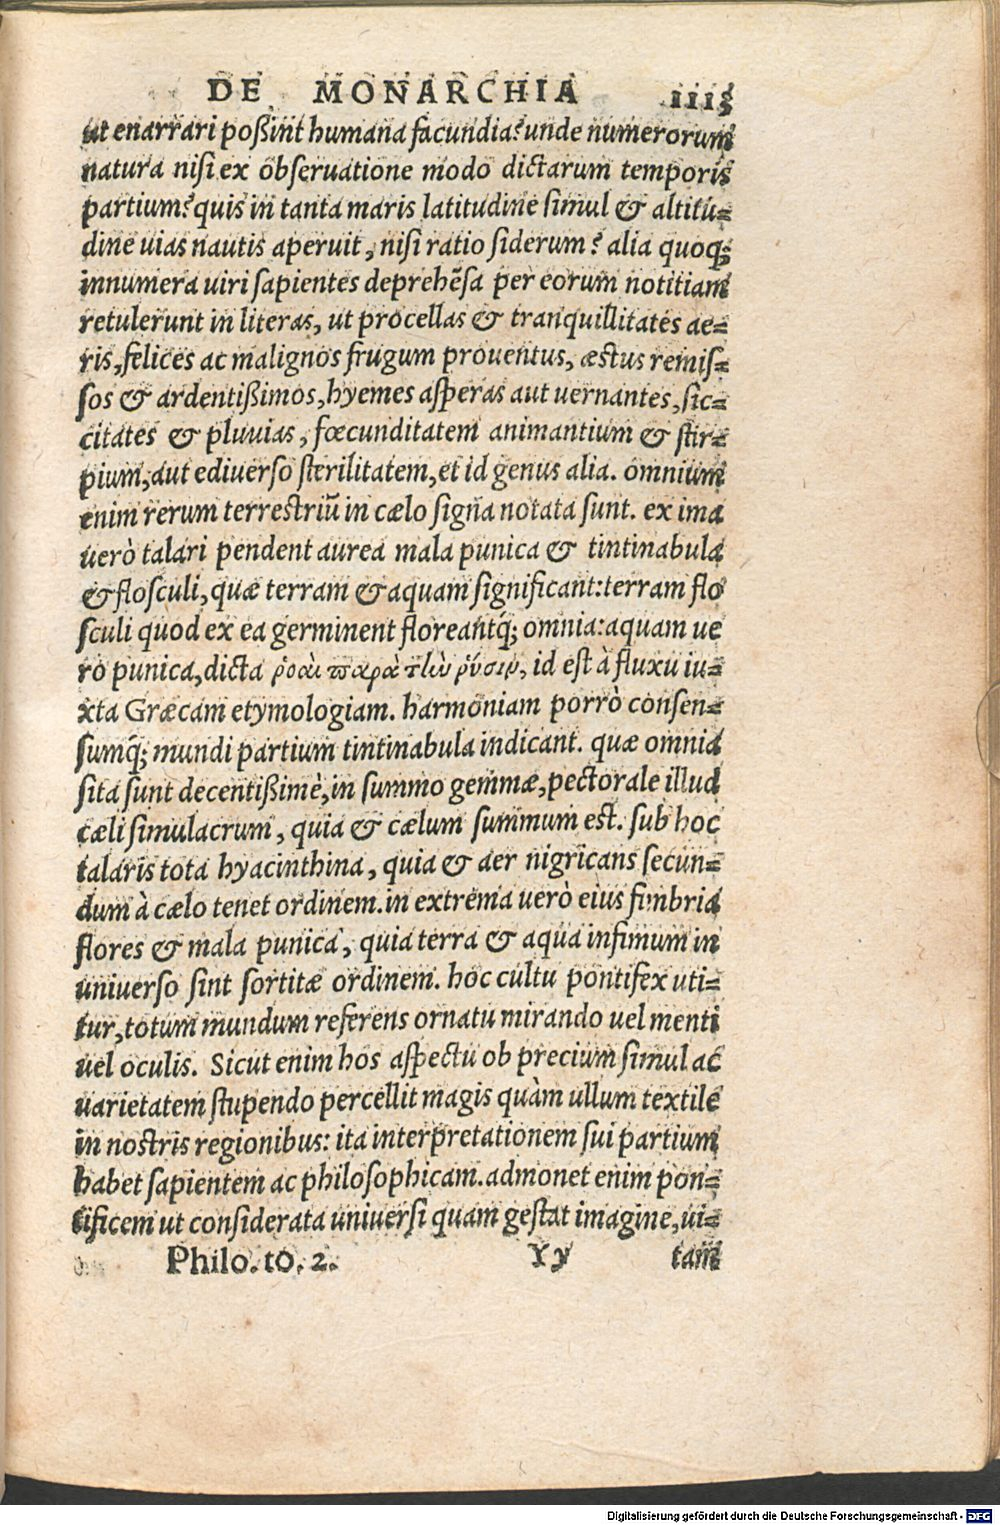 DE MONARCHIA
ut enarrari poßint humana facundia? unde numerorum
natura nisi ex obseruatione modo dictarum temporis
partium? quis in tanta maris latitudine simul & altitu-
dine uias nautis aperuit, nisi ratio siderum? alia quoq;
innumera uiri sapientes deprehẽsa per eorum notitiam
retulerunt in literas, ut procellas & tranquillitates ae-
ris, felices ac malignos frugum prouentus, æstus remis-
sos & ardentißimos, hyemes asperas aut uernantes, sic-
citates & pluuias, fœcunditatem animantium & stir-
pium, aut ediuerso sterilitatem, et id genus alia. omnium
enim rerum terrestriũ in cælo signa notata sunt. ex ima
uerò talari pendent aurea mala punica & tintinabula
& flosculi, quæ terram & aquam significant: terram flo
sculi quod ex ea germinent floreantq́; omnia: aquam ue
rò punica, dicta ῥοαὶ παρὰ τὴν ῥύσιν, id est à fluxu iu-
xta Græcam etymologiam. harmoniam porrò consen-
sumq́; mundi partium tintinabula indicant. quæ omnia
sita sunt decentißimè, in summo gemmæ, pectorale illud
cæli simulacrum, quia & cælum summum est. sub hoc
talaris tota hyacinthina, quia & aer nigricans secun-
dum à cælo tenet ordinem. in extrema uerò eius fimbria
flores & mala punica, quia terra & aqua infimum in
uniuerso sint sortitæ ordinem. hoc cultu pontifex uti-
tur, totum mundum referens ornatu mirando uel menti
uel oculis. Sicut enim hos aspectu ob precium simul ac
uarietatem stupendo percellit magis quàm ullum textile
in nostris regionibus: ita interpretationem sui partium
habet sapientem ac philosophicam. admonet enim pon-
tificem ut considerata uniuersi quam gestat imagine, ui-
Philo. to. 2. Yy tam
Digitalisierung gefördert durch die Deutsche Forschungsgemeinschaft - DFG